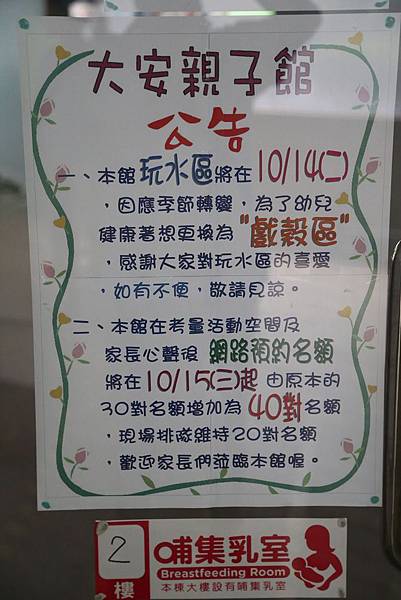 大安親子館
公告
一、本館玩水區將在10/14(二)
，因應季節轉變，為了幼兒
健康著想更換為"戲穀區"
，感謝大家對玩水區的喜愛
，如有不便，敬請見諒。
二、本館在考量活動空間及
家長心聲後 網路預約名額
將在10/15(三)起 由原本的
30對名額增加為 40對名額
，現場排隊維持20對名額
，歡迎家長們蒞臨本館喔。
2
樓
哺集乳室
Breastfeeding Room
本棟大樓設有哺集乳室